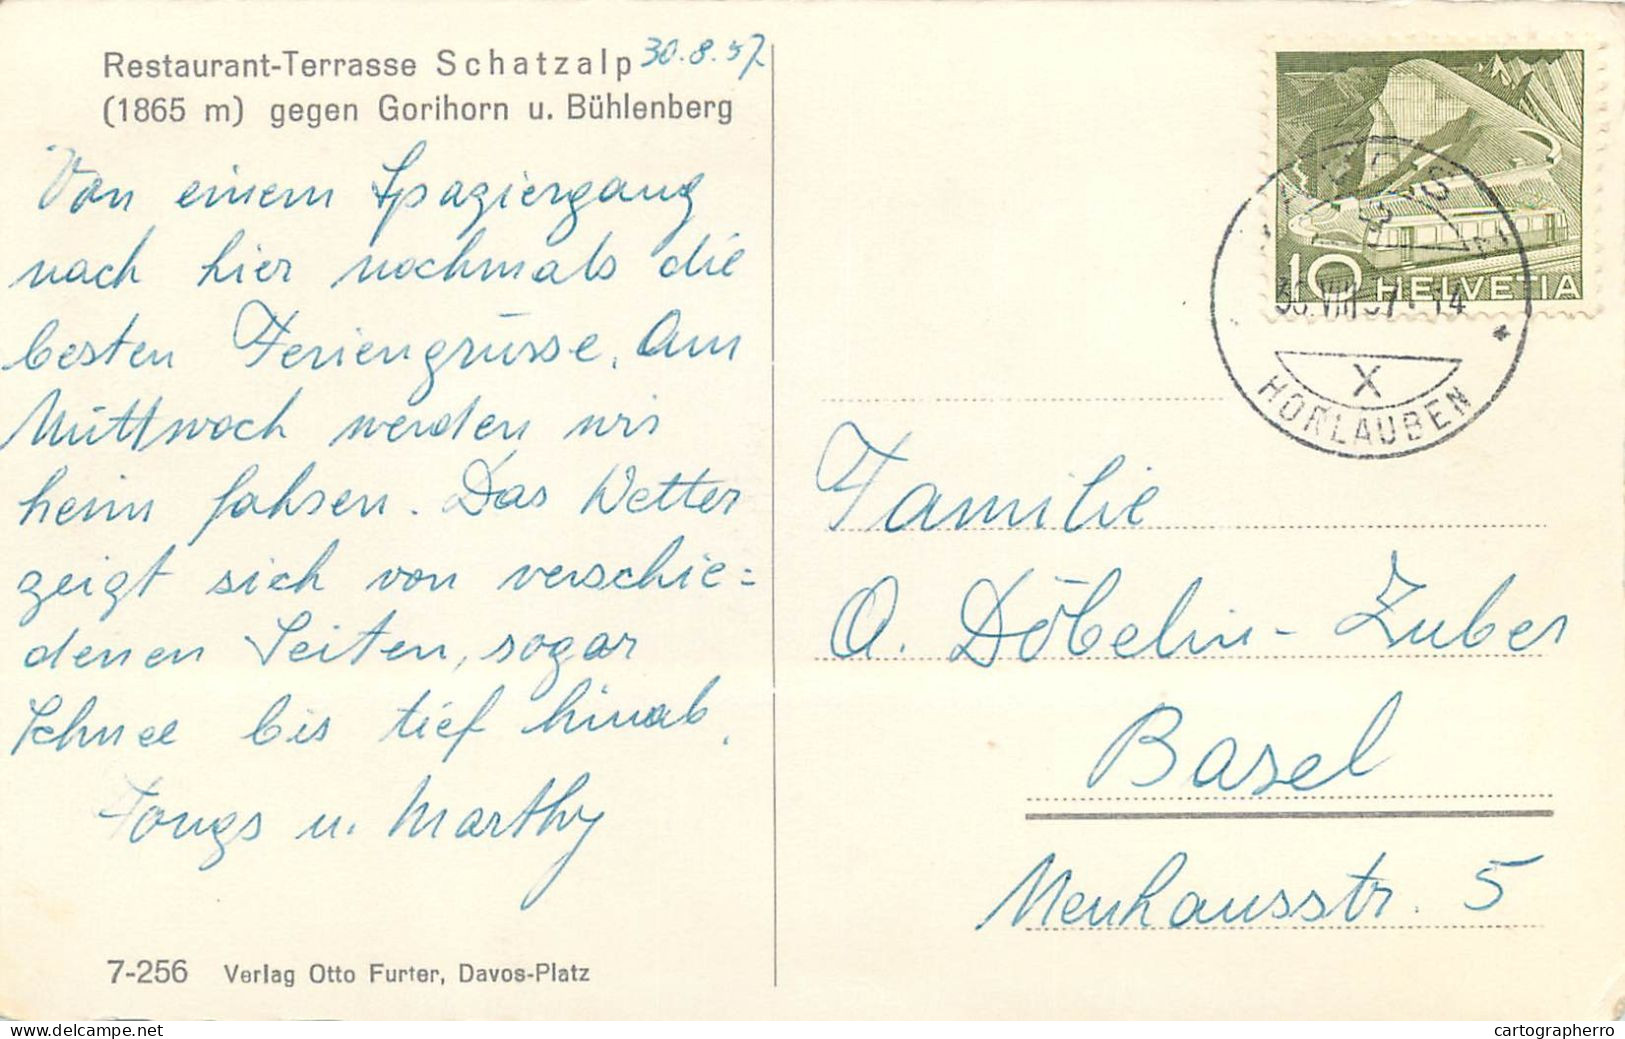 Restaurant-Terrasse Schatzalp
30.8.57
(1865 m) gegen Gorihorn u. Bühlenberg
Von einem Spaziergang
nach hier nochmals die
besten Feriengrüsse. Am
Mittwoch werden wir
heim fahren. Das Wetter
zeigt sich von verschie=
denen Seiten, sogar
Schnee bis tief hinab.
u. Marthy
7-256 Verlag Otto Furter, Davos-Platz
10 HELVETIA
30.VIII 57-14
X
HORLAUBEN
Familie
O. Döbelin-Zuber
Basel
Neuhausstr. 5
delcampe.net
cartographerro